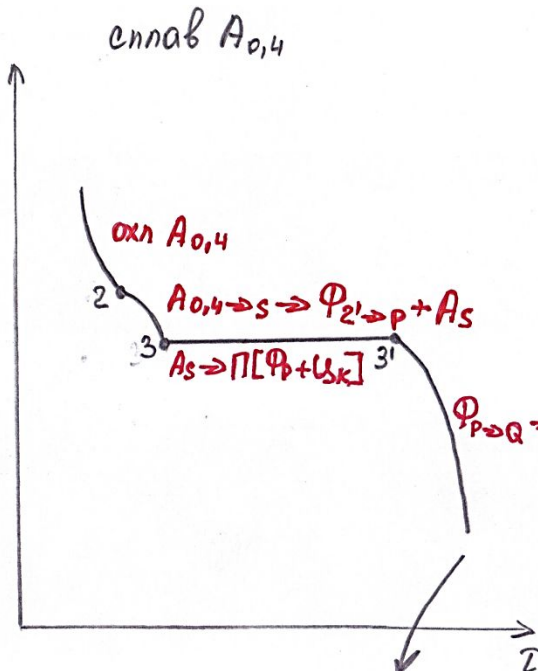 сплав A₀,₄
охл A₀,₄
2
A₀,₄→s → Ф₂'→p + As
3
As → П[Фp + Цк]
3'
Фp→Q
τ